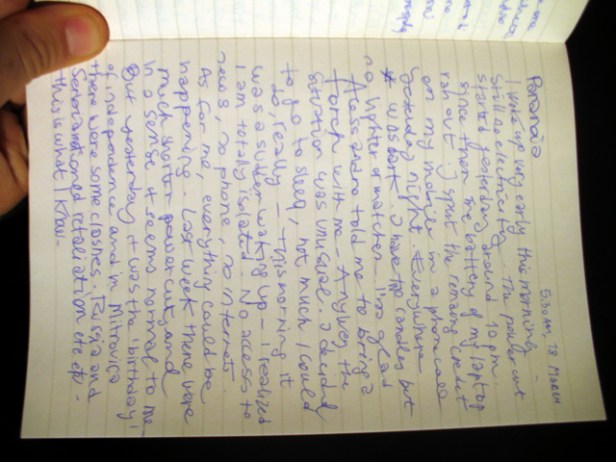 5:30 am, 18 March
Paranoia
I woke up very early this morning -
still no electricity. The power cut
started yesterday around 10 pm.
since then the battery of my laptop
ran out. I spent the remaining credit
on my mobile in a phonecall
yesterday night. Everywhere
was dark. I have candles but
no lighter or matches - I'm glad
Alessandra told me to bring a
torch with me - Anyway the
situation was unusual. I decided
to go to sleep, not much I could
do, really - This morning it
was a sudden waking up - I realized
I am totally isolated. No access to
news, no phone, no internet.
As for me, everything could be
happening. Last week there were
much shorter power cuts, and
in a sense it seems normal to me -
But yesterday it was the 'birthday'
of independence and in Mitrovica
there were some clashes. Russia and
Serbia retaliation
this is what I know -